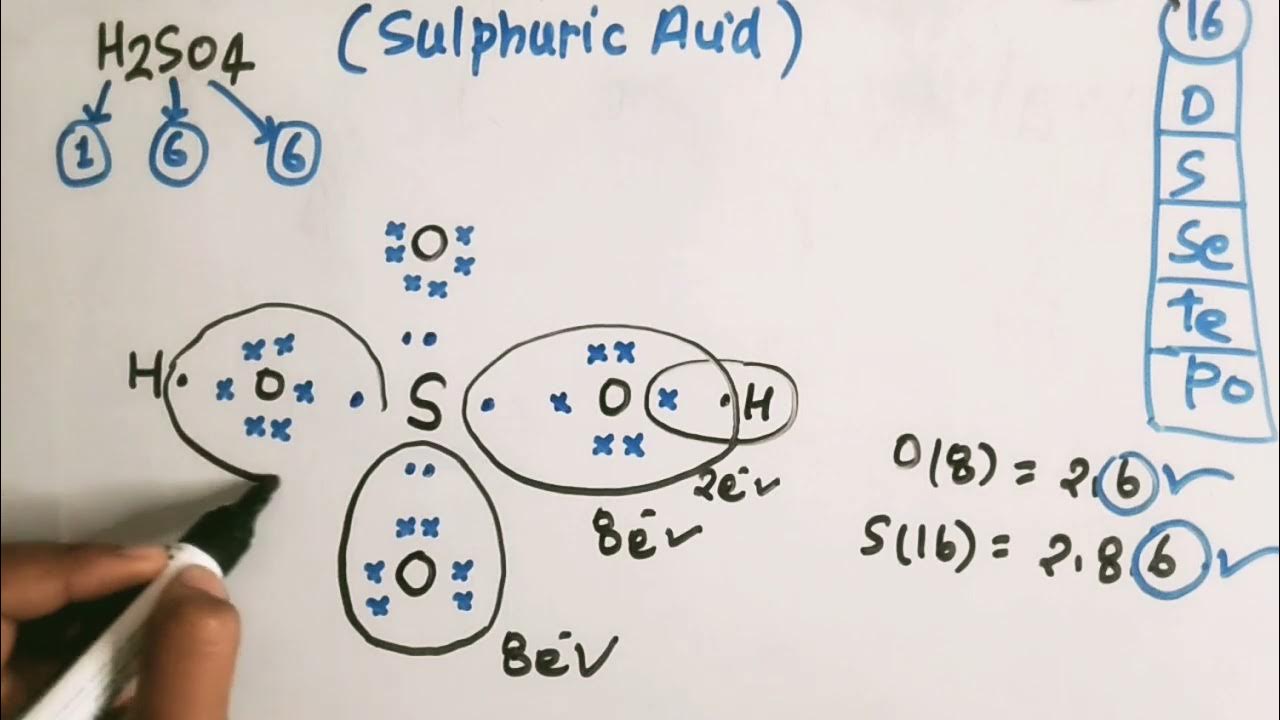 H2SO4 (Sulphuric Acid)
1 6 6
16
O
S
Se
te
Po
O
H O S O H
O
2e⁻✓
8e⁻✓
8e⁻✓
O(8) = 2.6 ✓
S(16) = 2.8.6 ✓